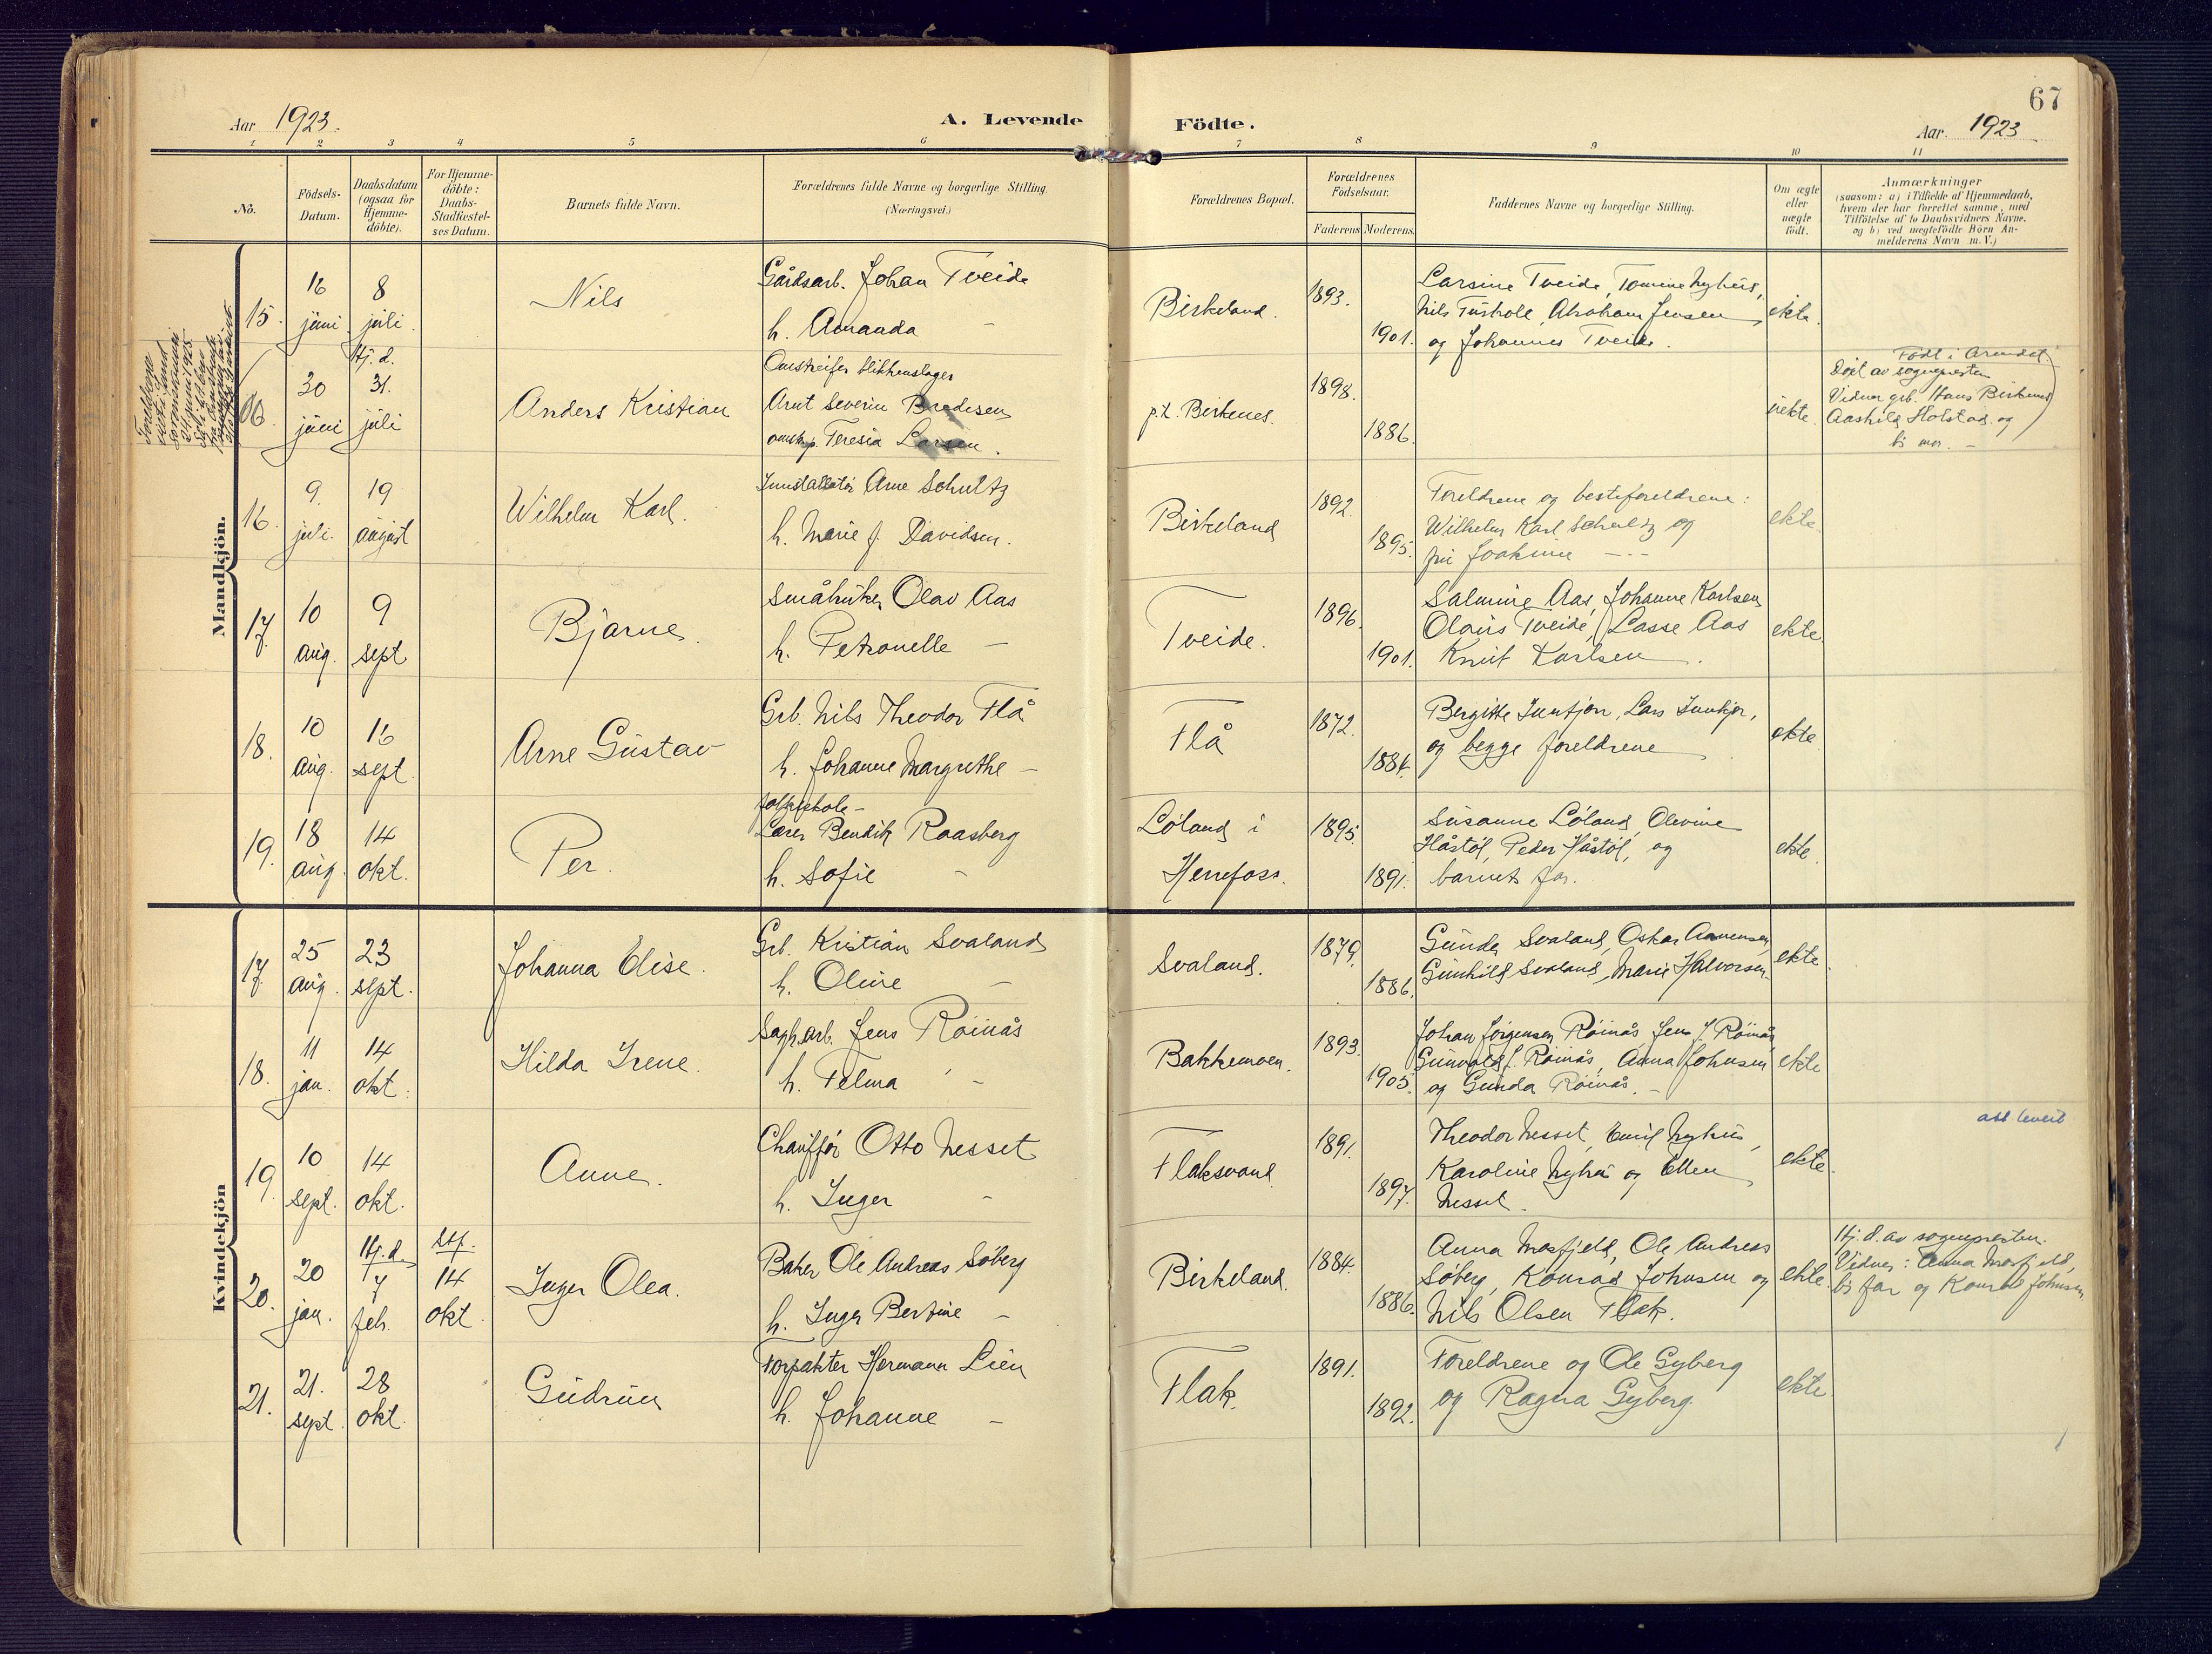 67
Aar 1923.
A. Levende
Födte.
Aar. 1923
1 2 3 4 5 6 7 8 9 10 11
No.
Födsels-
Datum.
Daabsdatum
(ogsaa for
Hjemme-
döbte).
For Hjemme-
döbte:
Daabs-
Stadfæstel-
ses Datum.
Barnets fulde Navn.
Forældrenes fulde Navne og borgerlige Stilling.
(Næringsvei.)
Forældrenes Bopæl.
Forældrenes
Födselsaar.
Faderens Moderens.
Faddernes Navne og borgerlige Stilling.
Om ægte
eller
uægte
födt.
Anmærkninger
(saasom: a) i Tilfælde af Hjemmedaab,
hvem der har forrettet samme, med
Tilföielse af to Daabsvidners Navne,
og b) ved uægtefödte Börn An-
melderens Navn m. V.)
Mandkjön.
15. 16 juni 8 juli.
Nils
Gårdsarb. Johan Tveide
h. Amanda –
Birkeland.
1893.
1901.
Larsine Tveide, Tomine Nyhus,
Nils Tushole, Abraham Jensen
og Johannes Tveide.
ekte.
30 juni Hj. d. 31. juli
Anders Kristian
Omstreifer blikkenslager
Arnt Severin Bredesen
omstrp. Teresia Larsen.
p.t. Birkenes.
1898.
1886.
uekte.
Født i Arendal.
Døpt av sognepresten
Vidner grb. Hans Birkenes
Aashild Holstad og
bs mor. –
16. 9. juli. 19 august
Wilhelm Karl.
Innstallatør Arne Schultz
h. Marie J. Davidsen.
Birkeland
1892.
1895.
Foreldrene og besteforeldrene:
Wilhelm Karl Schultz og
fru Joakime – –
ekte.
17. 10 aug. 9 sept
Bjarne.
Småbruker Olav Aas
h. Petronelle –
Tveide.
1896.
1901.
Salmine Aas, Johanne Karlsen
Olaus Tveide, Lasse Aas
Knut Karlsen.
ekte.
18. 10 aug. 16 sept.
Arne Gustav
Grb. Nils Theodor Flå
h. Johanne Margrethe –
Flå
1872.
1884.
og begge foreldrene
ekte
19. 18 aug. 14 okt.
Per.
folkeskole-
Lærer Bendik Raasberg
h. Sofie –
Løland i
Herefoss.
1895.
1891.
Susanne Løland, Olevine
Håstøl, Peder Håstøl, og
barnets far.
ekte.
Kvindekjön
17. 25 aug. 23 sept.
Johanna Elise.
Grb. Kristian Svaland
h. Oline –
Svaland.
1879.
1886.
Gunder Svaland, Oskar Aanensen,
Gunhild Svaland, Marie Halvorsen
ekte.
18. 11 jan. 14 okt.
Hilda Irene.
Sagb.arb. Jens Røinås
h. Telma –
Bakkemoen.
1893.
1905.
Johan Jørgensen Røinås, Jens J. Røinås,
Gunvald J. Røinås, Anna Johnsen
og Gunda Røinås. –
ekte
19. 10 sept. 14 okt.
Anne.
Chauffør Otto Nesset
h. Inger –
Flaksvand.
1891.
1897.
Theodor Nesset, Emil Nyhus,
Karoline Nyhus og Ellen
Nesset.
ekte.
20. 20 jan. Hj. d. 7 feb. Stf. 14 okt.
Inger Olea.
Baker Ole Andreas Søberg
h. Inger Bertine –
Birkeland.
1884.
1886.
Anna Mosfjeld, Ole Andreas
Søberg, Konrad Johnsen og
Nils Olsen Flak.
ekte.
Hj. d. av sognepresten.
Vidner: Anna Mosfjeld,
bs far og Konrad Johnsen.
21. 21. sept. 28 okt.
Gudrun
Forpakter Hermann Lien
h. Johanne –
Flak.
1891.
1892.
Foreldrene og Ole Gyberg
og Ragna Gyberg.
ekte.